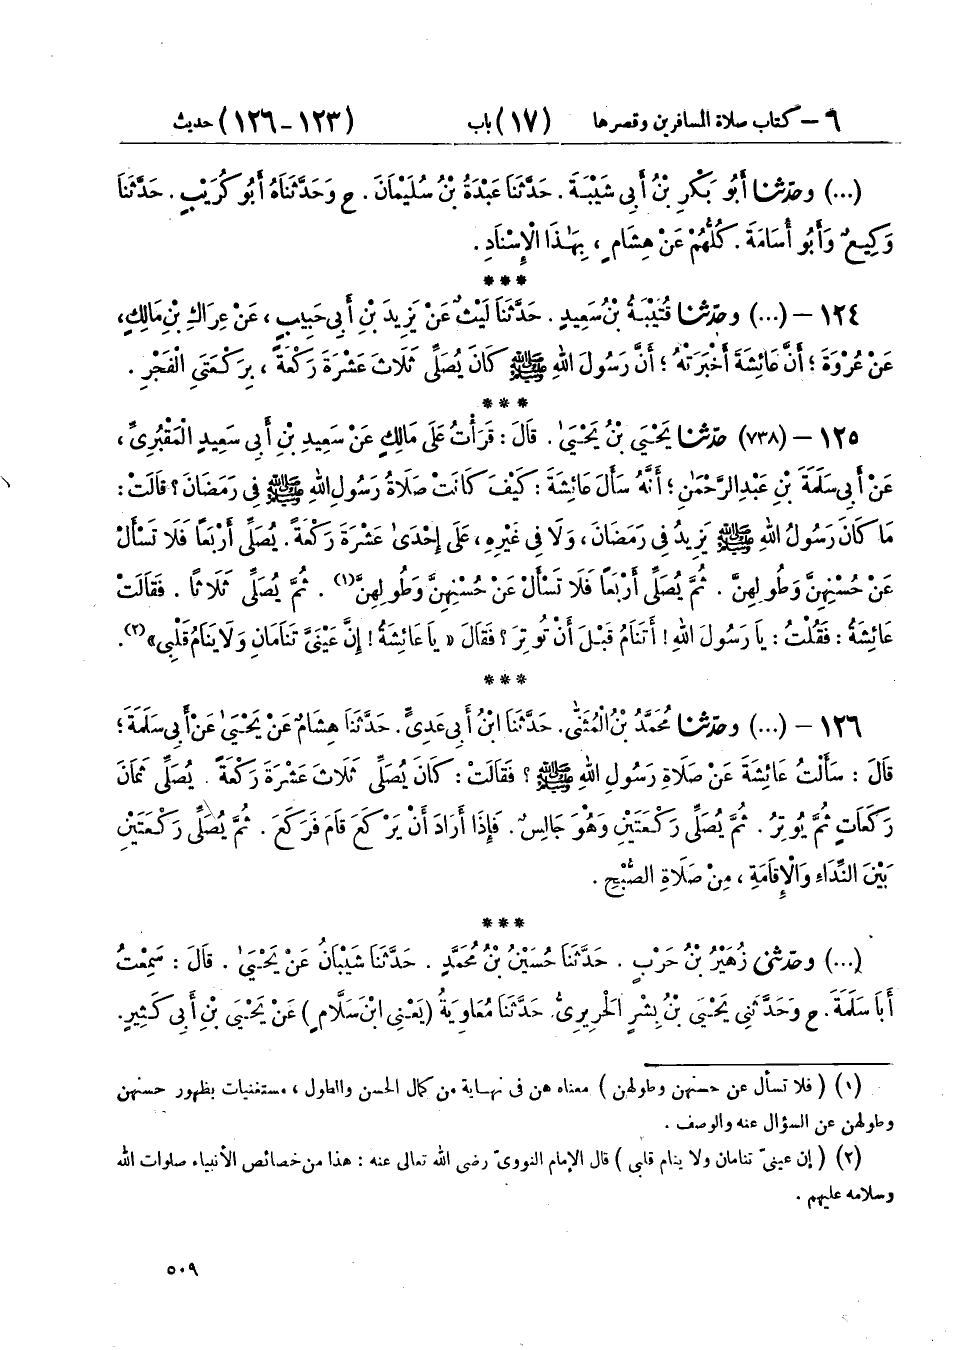 ٦ – كتاب صلاة المسافرين وقصرها (١٧) باب (١٢٣-١٢٦) حديث
(...) وحدّثنا أَبُو بَكْرِ بْنُ أَبِي شَيْبَةَ . حَدَّثَنَا عَبْدَةُ بْنُ سُلَيْمَانَ . ح وَحَدَّثَنَاهُ أَبُو كُرَيْبٍ . حَدَّثَنَا
وَكِيعٌ وَأَبُو أُسَامَةَ . كُلُّهُمْ عَنْ هِشَامٍ ، بِهٰذَا الْإِسْنَادِ .
***
١٢٤ – (...) وحدّثنا قُتَيْبَةُ بْنُ سَعِيدٍ . حَدَّثَنَا لَيْثٌ عَنْ يَزِيدَ بْنِ أَبِي حَبِيبٍ ، عَنْ عِرَاكِ بْنِ مَالِكٍ ،
عَنْ عُرْوَةَ ؛ أَنَّ عَائِشَةَ أَخْبَرَتْهُ ؛ أَنَّ رَسُولَ اللهِ ﷺ كَانَ يُصَلِّي ثَلَاثَ عَشْرَةَ رَكْعَةً ، بِرَكْعَتَيِ الْفَجْرِ .
***
١٢٥ – (٧٣٨) حدّثنا يَحْيَىٰ بْنُ يَحْيَىٰ . قَالَ : قَرَأْتُ عَلَى مَالِكٍ عَنْ سَعِيدِ بْنِ أَبِي سَعِيدٍ الْمَقْبُرِيِّ ،
عَنْ أَبِي سَلَمَةَ بْنِ عَبْدِ الرَّحْمٰنِ ؛ أَنَّهُ سَأَلَ عَائِشَةَ : كَيْفَ كَانَتْ صَلَاةُ رَسُولِ اللهِ ﷺ فِي رَمَضَانَ ؟ قَالَتْ :
مَا كَانَ رَسُولُ اللهِ ﷺ يَزِيدُ فِي رَمَضَانَ ، وَلَا فِي غَيْرِهِ ، عَلَى إِحْدَىٰ عَشْرَةَ رَكْعَةً . يُصَلِّي أَرْبَعًا فَلَا تَسْأَلْ
عَنْ حُسْنِهِنَّ وَطُولِهِنَّ . ثُمَّ يُصَلِّي أَرْبَعًا فَلَا تَسْأَلْ عَنْ حُسْنِهِنَّ وَطُولِهِنَّ (١) . ثُمَّ يُصَلِّي ثَلَاثًا . فَقَالَتْ
عَائِشَةُ : فَقُلْتُ : يَا رَسُولَ اللهِ ! أَتَنَامُ قَبْلَ أَنْ تُوتِرَ ؟ فَقَالَ « يَا عَائِشَةُ ! إِنَّ عَيْنَيَّ تَنَامَانِ وَلَا يَنَامُ قَلْبِي » (٢) .
***
١٢٦ – (...) وحدّثنا مُحَمَّدُ بْنُ الْمُثَنَّى . حَدَّثَنَا ابْنُ أَبِي عَدِيٍّ . حَدَّثَنَا هِشَامٌ عَنْ يَحْيَىٰ عَنْ أَبِي سَلَمَةَ ؛
قَالَ : سَأَلْتُ عَائِشَةَ عَنْ صَلَاةِ رَسُولِ اللهِ ﷺ ؟ فَقَالَتْ : كَانَ يُصَلِّي ثَلَاثَ عَشْرَةَ رَكْعَةً . يُصَلِّي ثَمَانَ
رَكَعَاتٍ ثُمَّ يُوتِرُ . ثُمَّ يُصَلِّي رَكْعَتَيْنِ وَهُوَ جَالِسٌ . فَإِذَا أَرَادَ أَنْ يَرْكَعَ قَامَ فَرَكَعَ . ثُمَّ يُصَلِّي رَكْعَتَيْنِ
بَيْنَ النِّدَاءِ وَالْإِقَامَةِ ، مِنْ صَلَاةِ الصُّبْحِ .
***
(...) وحدّثني زُهَيْرُ بْنُ حَرْبٍ . حَدَّثَنَا حُسَيْنُ بْنُ مُحَمَّدٍ . حَدَّثَنَا شَيْبَانُ عَنْ يَحْيَىٰ . قَالَ : سَمِعْتُ
أَبَا سَلَمَةَ . ح وَحَدَّثَنِي يَحْيَىٰ بْنُ بِشْرٍ الْحَرِيرِيُّ . حَدَّثَنَا مُعَاوِيَةُ (يَعْنِي ابْنَ سَلَّامٍ) عَنْ يَحْيَىٰ بْنِ أَبِي كَثِيرٍ .
(١) ( فلا تسأل عن حسنهن وطولهن ) معناه هن فى نهاية من كمال الحسن والطول ، مستغنيات بظهور حسنهن
وطولهن عن السؤال عنه والوصف .
(٢) ( إن عينىّ تنامان ولا ينام قلبى ) قال الإمام النووىّ رضى الله تعالى عنه : هذا من خصائص الأنبياء صلوات الله
وسلامه عليهم .
٥٠٩